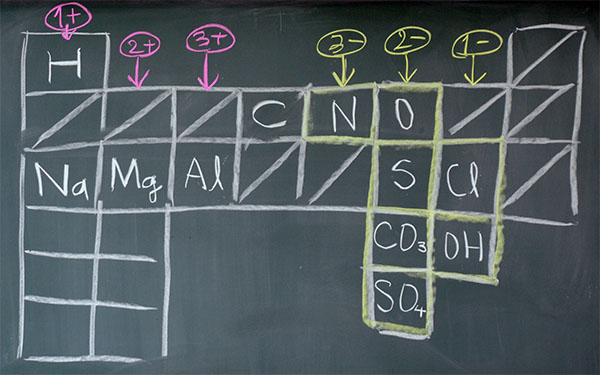 1+ 2+ 3+ 3- 2- 1-
H
C N O
Na Mg Al S Cl
CO₃ OH
SO₄